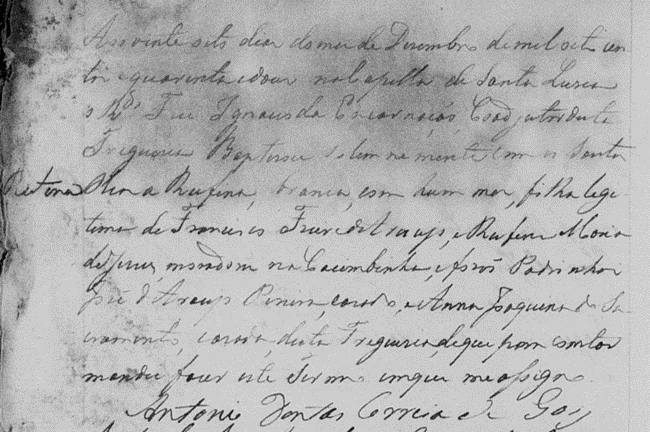 Aos vinte seis dias do mes de Dezembro de mil sete cen
tos e quarenta e dous na Capella de Santa Luzia
o Rdo Frei Ignacio da Encarnação, Coadjutor desta
Freguesia Baptisou solemnemente com os Santos
Rufina
a Rufina, branca, com hum mes, filha legi
tima de Francisco Freire de Araujo, e Rufina Maria
de Jesus, moradores na Cacimbinha, e forão Padrinhos
José d'Araujo Pereira, casado, e Anna Joaquina do Sa-
cramento, casada, desta Freguesia, de que para constar
mandei fazer este Termo em que me assigno.
Antonio Dantas Correia de Goiz